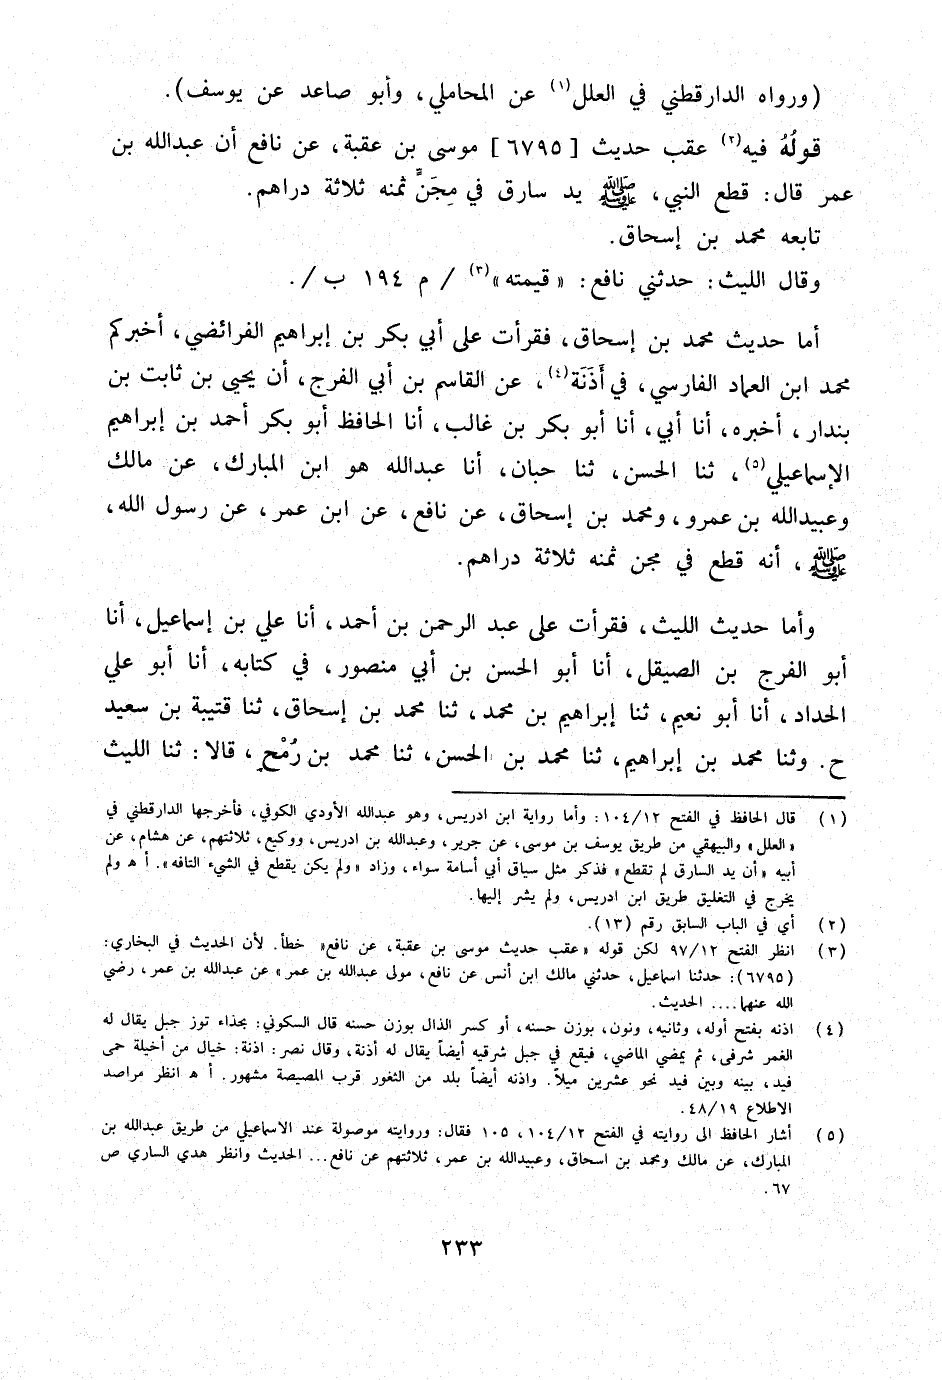 (ورواه الدارقطني في العلل(١) عن المحاملي، وأبو صاعد عن يوسف).
قولُهُ فيه(٢) عقب حديث [٦٧٩٥] موسى بن عقبة، عن نافع أن عبدالله بن
عمر قال: قطع النبي، ﷺ يد سارق في مِجَنٍّ ثمنه ثلاثة دراهم.
تابعه محمد بن إسحاق.
وقال الليث: حدثني نافع: «قيمته»(٣) / م ١٩٤ ب /.
أما حديث محمد بن إسحاق، فقرأت على أبي بكر بن إبراهيم الفرائضي، أخبركم
محمد ابن العماد الفارسي، في أَذَنَة(٤)، عن القاسم بن أبي الفرج، أن يحيى بن ثابت بن
بندار، أخبره، أنا أبي، أنا أبو بكر بن غالب، أنا الحافظ أبو بكر أحمد بن إبراهيم
الإسماعيلي(٥)، ثنا الحسن، ثنا حبان، أنا عبدالله هو ابن المبارك، عن مالك
وعبيدالله بن عمرو، ومحمد بن إسحاق، عن نافع، عن ابن عمر، عن رسول الله،
ﷺ، أنه قطع في مجن ثمنه ثلاثة دراهم.
وأما حديث الليث، فقرأت على عبد الرحمن بن أحمد، أنا علي بن إسماعيل، أنا
أبو الفرج بن الصيقل، أنا أبو الحسن بن أبي منصور، في كتابه، أنا أبو علي
الحداد، أنا أبو نعيم، ثنا إبراهيم بن محمد، ثنا محمد بن إسحاق، ثنا قتيبة بن سعيد
ح. وثنا محمد بن إبراهيم، ثنا محمد بن الحسن، ثنا محمد بن رُمْحٍ، قالا: ثنا الليث
(١) قال الحافظ في الفتح ١٠٤/١٢: وأما رواية ابن ادريس، وهو عبدالله الأودي الكوفي، فأخرجها الدارقطني في
«العلل» والبيهقي من طريق يوسف بن موسى، عن جرير، وعبدالله بن ادريس، ووكيع، ثلاثتهم، عن هشام، عن
أبيه «أن يد السارق لم تقطع» فذكر مثل سياق أبي أسامة سواء، وزاد «ولم يكن يقطع في الشيء التافه». أ هـ ولم
يخرج في التغليق طريق ابن ادريس، ولم يشر إليها.
(٢) أي في الباب السابق رقم (١٣).
(٣) انظر الفتح ٩٧/١٢ لكن قوله «عقب حديث موسى بن عقبة، عن نافع» خطأ. لأن الحديث في البخاري:
(٦٧٩٥): حدثنا اسماعيل، حدثني مالك ابن أنس عن نافع، مولى عبدالله بن عمر» عن عبدالله بن عمر، رضي
الله عنهما.... الحديث.
(٤) اذنه بفتح أوله، وثانيه، ونون، بوزن حسنه، أو كسر الذال بوزن حسنه قال السكوني: بحذاء توز جبل يقال له
الغمر شرقى، ثم يمضي الماضي، فيقع في جبل شرقيه أيضاً يقال له أذنة، وقال نصر: اذنة: خيال من أخيلة حمى
فيد، بينه وبين فيد نحو عشرين ميلاً. واذنه أيضاً بلد من الثغور قرب المصيصة مشهور. أ هـ انظر مراصد
الاطلاع ٤٨/١٩.
(٥) أشار الحافظ الى روايته في الفتح ١٠٤/١٢، ١٠٥ فقال: وروايته موصولة عند الاسماعيلي من طريق عبدالله بن
المبارك، عن مالك ومحمد بن اسحاق، وعبيدالله بن عمر، ثلاثتهم عن نافع... الحديث وانظر هدي الساري ص
٦٧.
٢٣٣